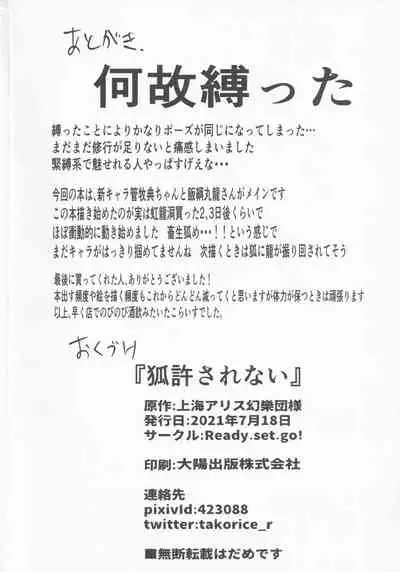 あとがき.
何故縛った
縛ったことによりかなりポーズが同じになってしまった…
まだまだ修行が足りないと痛感しまいました
緊縛系で魅せれる人やっぱすげえな・・・
今回の本は、新キャラ管牧典ちゃんと飯綱丸龍さんがメインです
この本描き始めたのが実は虹龍洞買った2,3日後くらいで
ほぼ衝動的に動き始めました　畜生狐め・・・！！という感じで
まだキャラがはっきり掴めてませんね　次描くときは狐に龍が振り回されてそう
最後に買ってくれた人、ありがとうございました！
本出す頻度や絵を描く頻度もこれからどんどん減ってくと思いますが体力が保つときは頑張ります
以上、早く店でのびのび酒飲みたいたこらいすでした。
おくづけ
『狐許されない』
原作:上海アリス幻樂団様
発行日:2021年7月18日
サークル:Ready.set.go!
印刷:大陽出版株式会社
連絡先
pixivId:423088
twitter:takorice_r
■無断転載はだめです